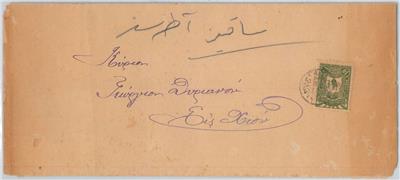 ساقز آطه سنه
Κύριον
Γεώργιον Δυριανού
Εἰς Χίον